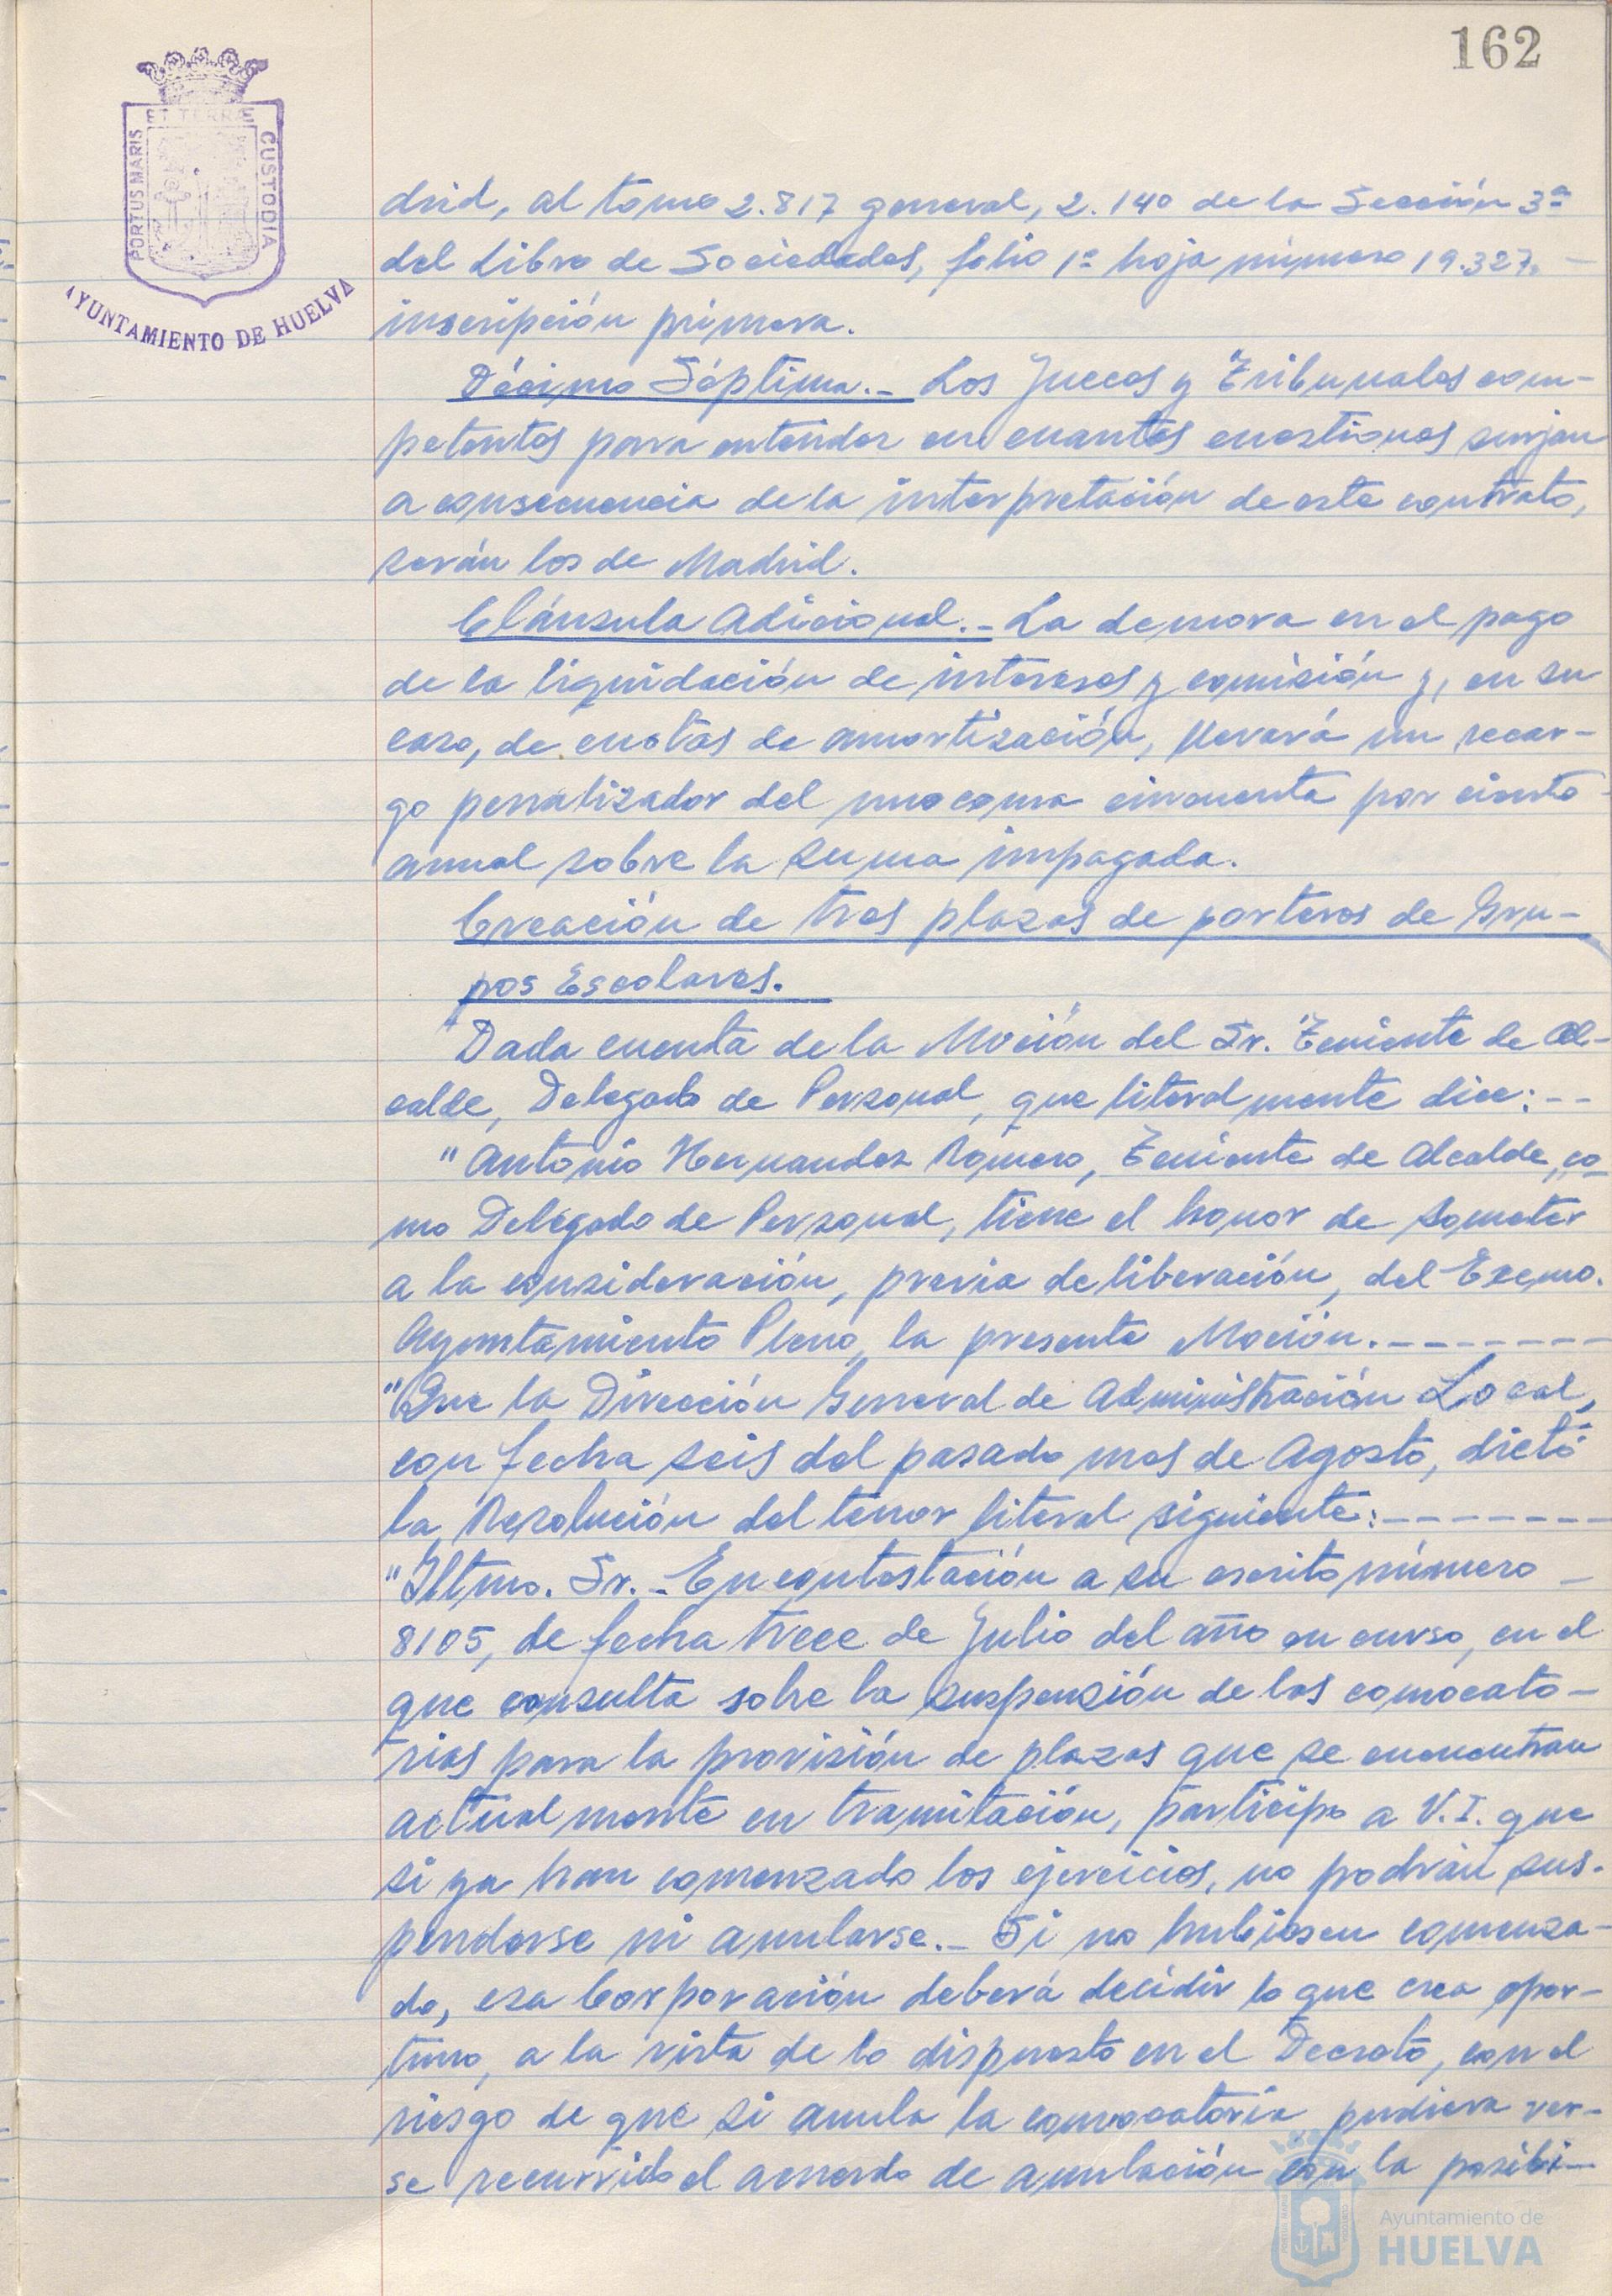 162
ET TERRÆ
PORTUS MARIS
CUSTODIA
AYUNTAMIENTO DE HUELVA
drid, al tomo 2.817 general, 2.140 de la Sección 3ª
del Libro de Sociedades, folio 1º hoja número 19.327,
inscripción primera.
Décimo Séptima.- Los Jueces y Tribunales com-
petentes para entender en cuantas cuestiones surjan
a consecuencia de la interpretación de este contrato,
serán los de Madrid.
Cláusula Adicional.- La demora en el pago
de la liquidación de intereses y comisión y, en su
caso, de cuotas de amortización, llevará un recar-
go penalizador del uno coma cincuenta por ciento
anual sobre la suma impagada.
Creación de tres plazas de porteros de Gru-
pos Escolares.
Dada cuenta de la Moción del Sr. Teniente de Al-
calde, Delegado de Personal, que literalmente dice:--
"Antonio Hernandez Romero, Teniente de Alcalde, co-
mo Delegado de Personal, tiene el honor de someter
a la consideración, previa deliberación, del Excmo.
Ayuntamiento Pleno, la presente Moción.-------
"Que la Dirección General de Administración Local,
con fecha seis del pasado mes de Agosto, dictó
la Resolución del tenor literal siguiente:-------
"Iltmo. Sr.- En contestación a su escrito número -
8105, de fecha trece de Julio del año en curso, en el
que consulta sobre la suspensión de las convocato-
rias para la provisión de plazas que se encuentran
actualmente en tramitación, participo a V.I. que
si ya han comenzado los ejercicios, no podrán sus-
penderse ni anularse.- Si no hubiesen comenza-
do, esa Corporación deberá decidir lo que crea opor-
tuno, a la vista de lo dispuesto en el Decreto, con el
riesgo de que si anula la convocatoria pudiera ver-
se recurrido el acuerdo de anulación con la posibi-
Ayuntamiento de
HUELVA